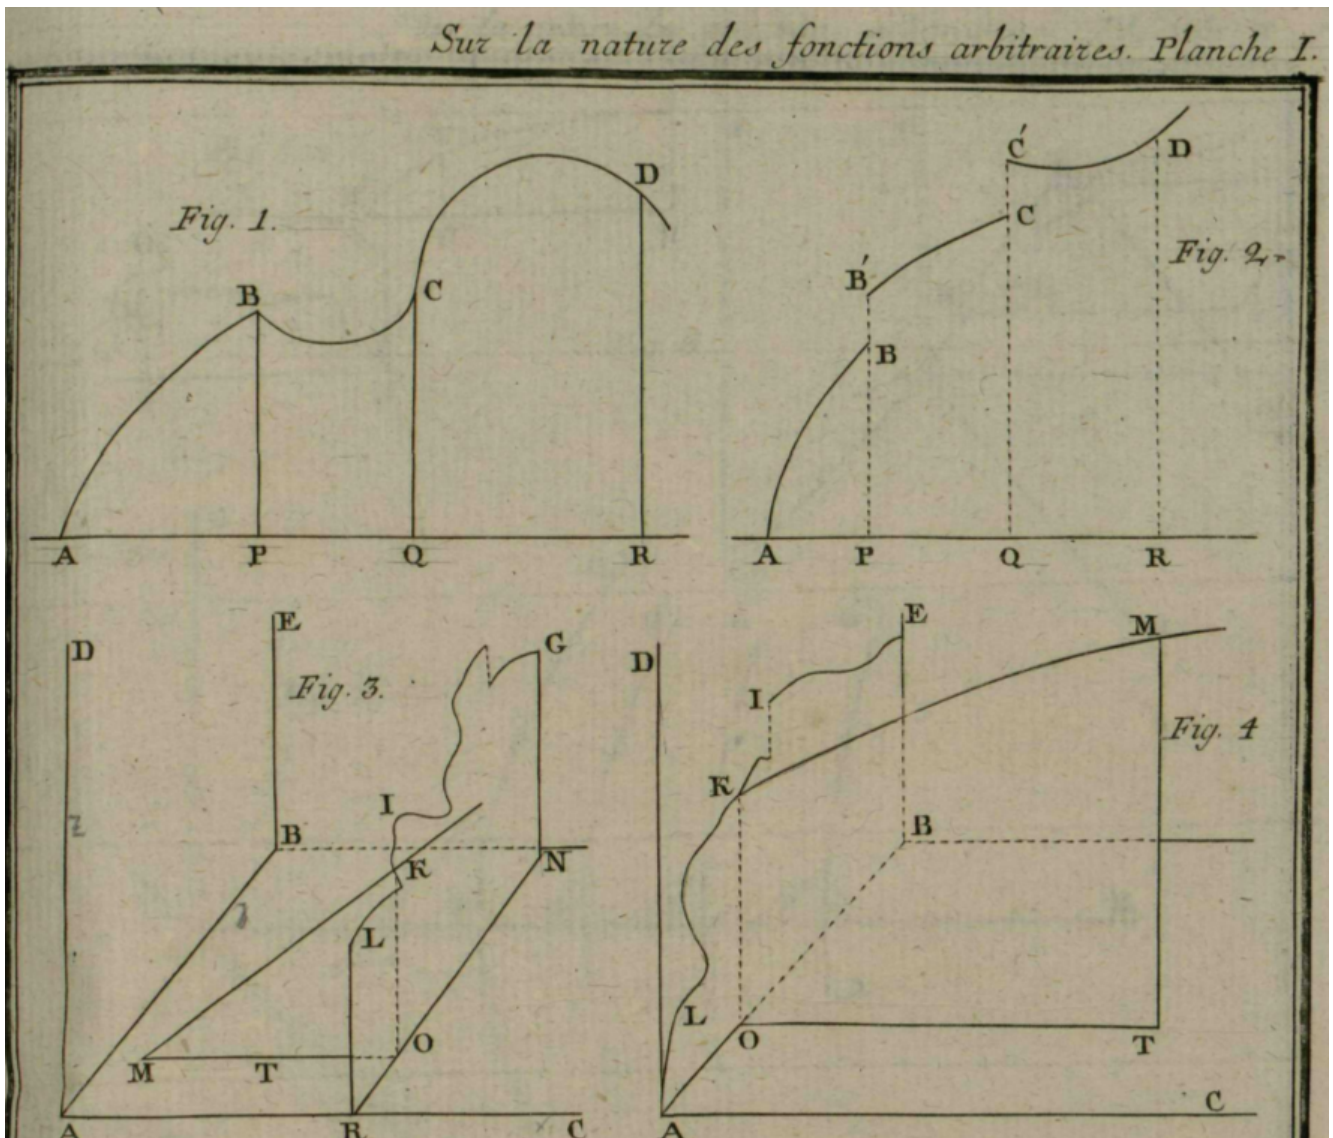 Sur la nature des fonctions arbitraires. Planche I.
Fig. 1.
B
C
D
A
P
Q
R
Fig. 2.
C′
D
C
B′
B
A
P
Q
R
Fig. 3.
D
E
G
I
B
K
N
L
O
M
T
A
R
C
Fig. 4
E
M
D
I
K
B
L
O
T
C
A